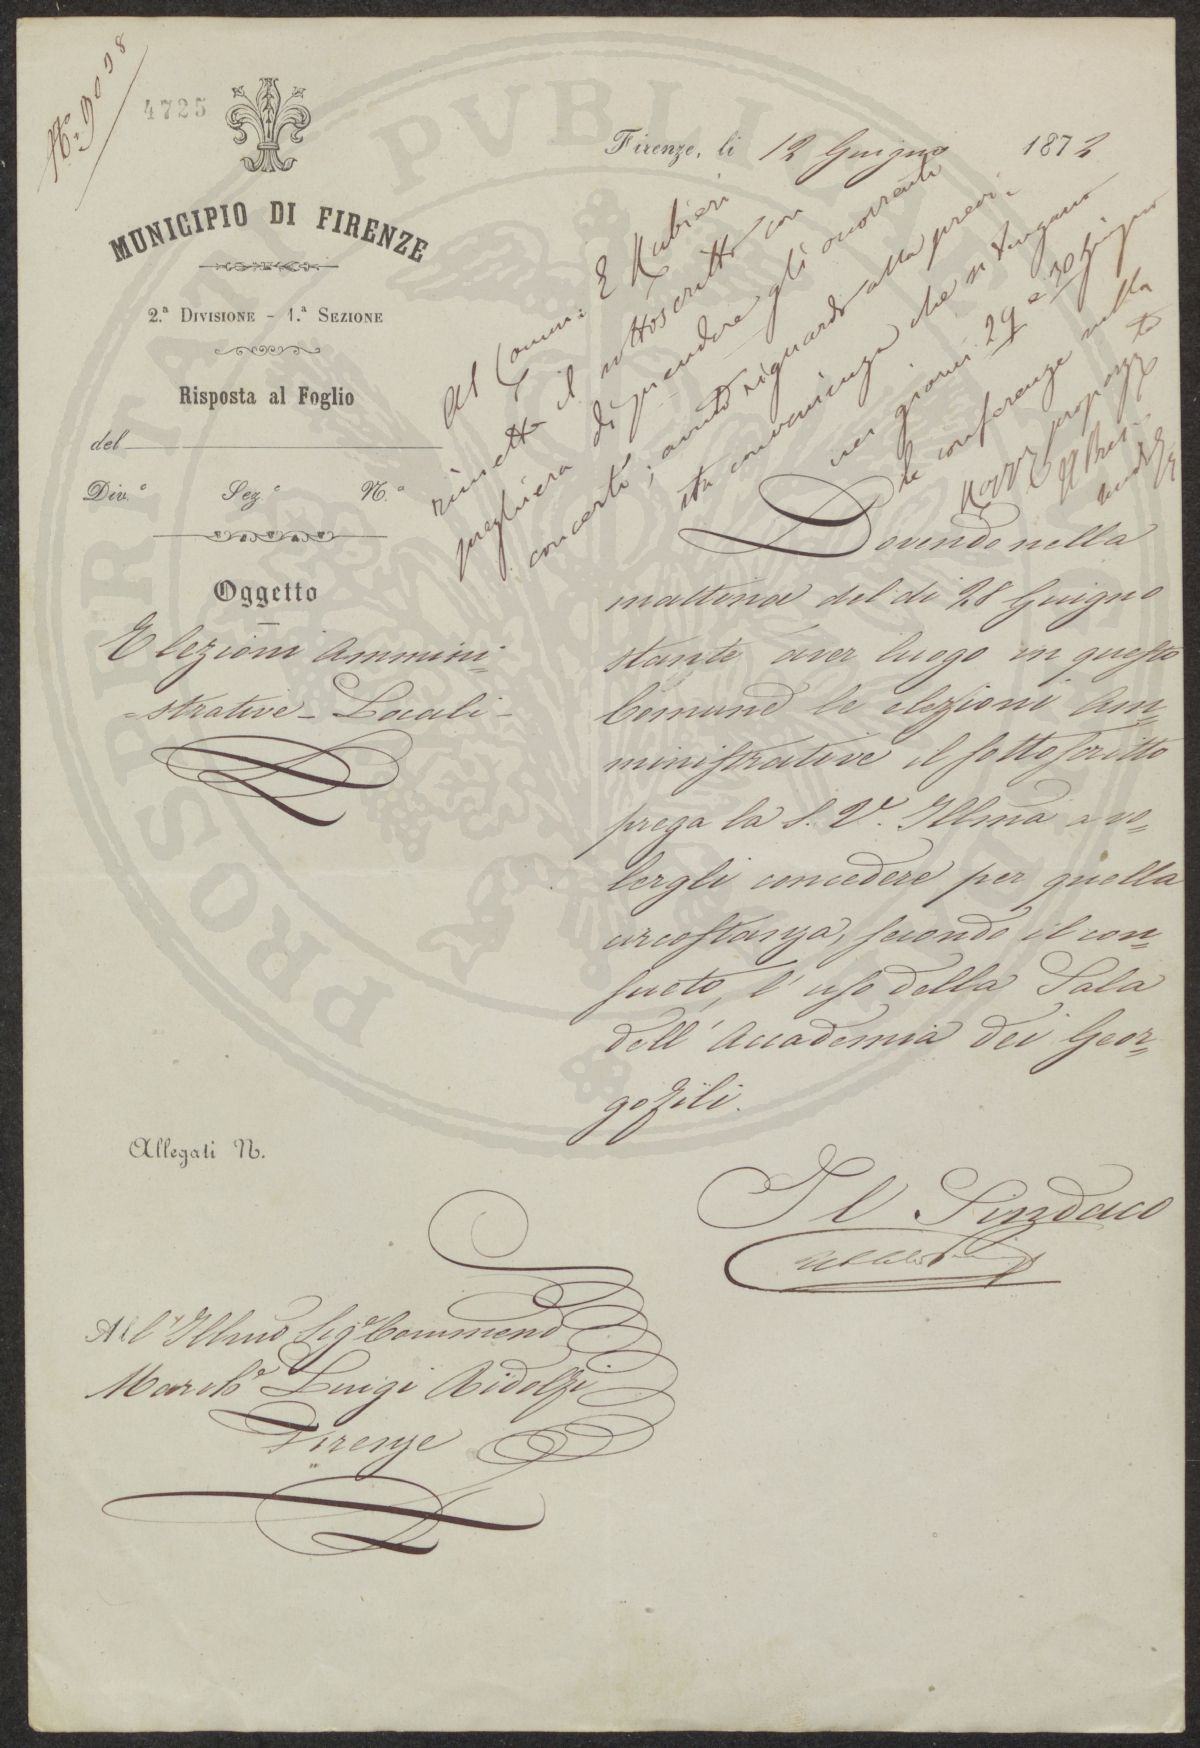 N.° 9098
4725
MUNICIPIO DI FIRENZE
2.ª DIVISIONE - 1.ª SEZIONE
Risposta al Foglio
del
Div.e Sez.e N.°
Oggetto
Elezioni Ammini-
-strative - Locali -
Firenze, li 12 Giugno 1872
Al Comm: E Rubieri
rimette il sottoscritto con
preghiera di prendere gli occorrenti
concerti, avuto riguardo alla previ-
sta convenienza che si tengano
nei giorni 29 e 30 Giugno
le conferenze sulla
proposta
Il Pres.
Dovendo nella
mattina del dì 28 Giugno
stante aver luogo in questo
Comune le elezioni Am-
ministrative il sottoscritto
prega la S. V. Illma a vo-
lergli concedere per quella
circostanza, secondo il con-
sueto, l'uso della Sala
dell'Accademia dei Geor-
gofili.
Il Sindaco
Allegati N.
All'Illmo Sig.e Commend
March.e Luigi Ridolfi
Firenze
PROSPERITATI PVBLICAE